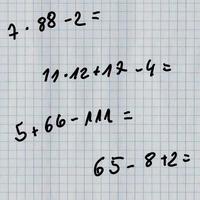 7 · 88 - 2 =
11 · 12 + 17 - 4 =
5 + 66 - 111 =
65 - 8 + 2 =